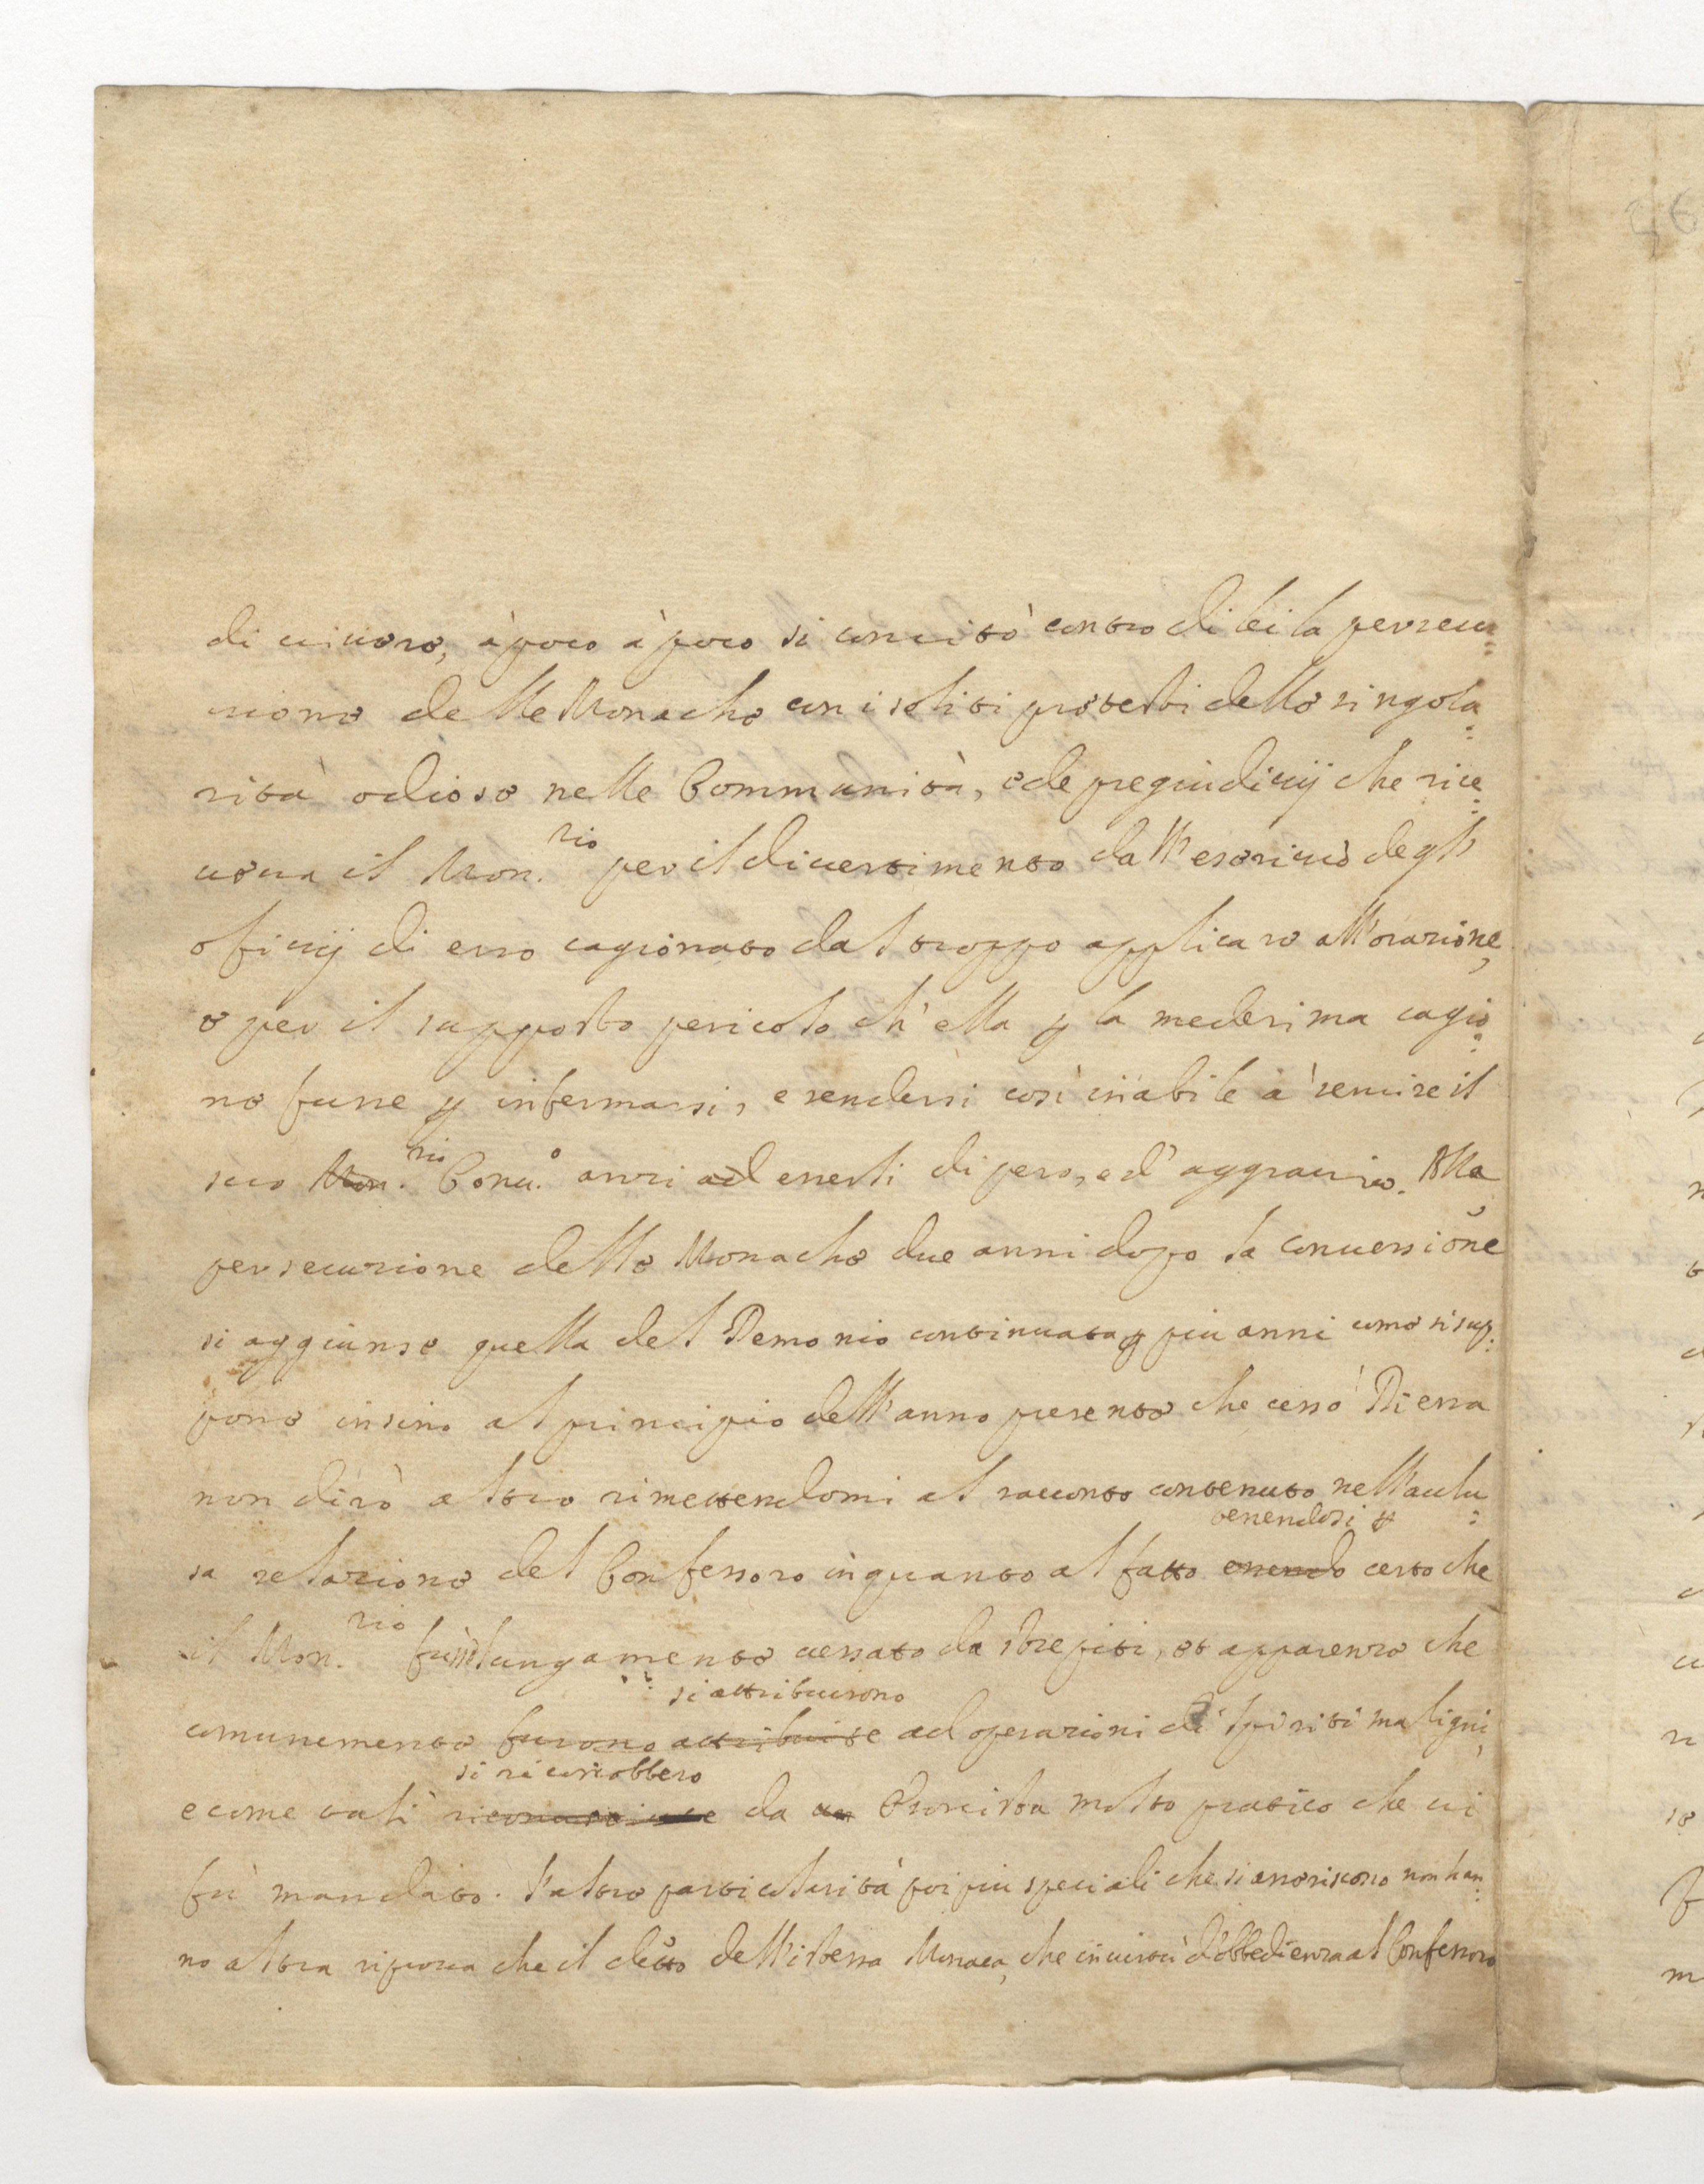 di vivere, à poco à poco si concitò contro di lei la persecu=
zione delle Monache con i soliti protesti delle singola=
rità odiose nelle Communità, e de pregiudicij che rice=
veva il Mon.rio per il divertimento dall'esercitio degli
oficij di esso cagionato dal troppo applicare all'orazione,
e per il supposto pericolo ch'ella p la medesima cagio=
ne fusse p infermarsi, e rendersi così inabile a' servire il
suo Mon.rio Conv.o anzi ad esserli di peso, e d'aggravio. Alla
persecuzione delle Monache due anni dopo la conversione
si aggiunse quella del Demonio continuata p piu anni come si sup=
pone insino al principio dell'anno presente che cessò Di essa
non dirò altro rimettendomi al racconto contenuto nell'acclu=
tenendosi p
sa relazione del Confessore in quanto al fatto essendo certo che
il Mon.rio fù lungamente vessato da strepiti, et apparenze che
si attribuirono
comunemente furono attribuite ad operazioni di spiriti maligni,
si riconobbero
e come tali riconosciute da un Esorcista molto pratico che vi
fù mandato. L'altre particolarità poi piu speciali che si asseriscono non han=
no altra riprova che il detto dell'istessa Monaca, che in virtù d'obbedienza al Confessore